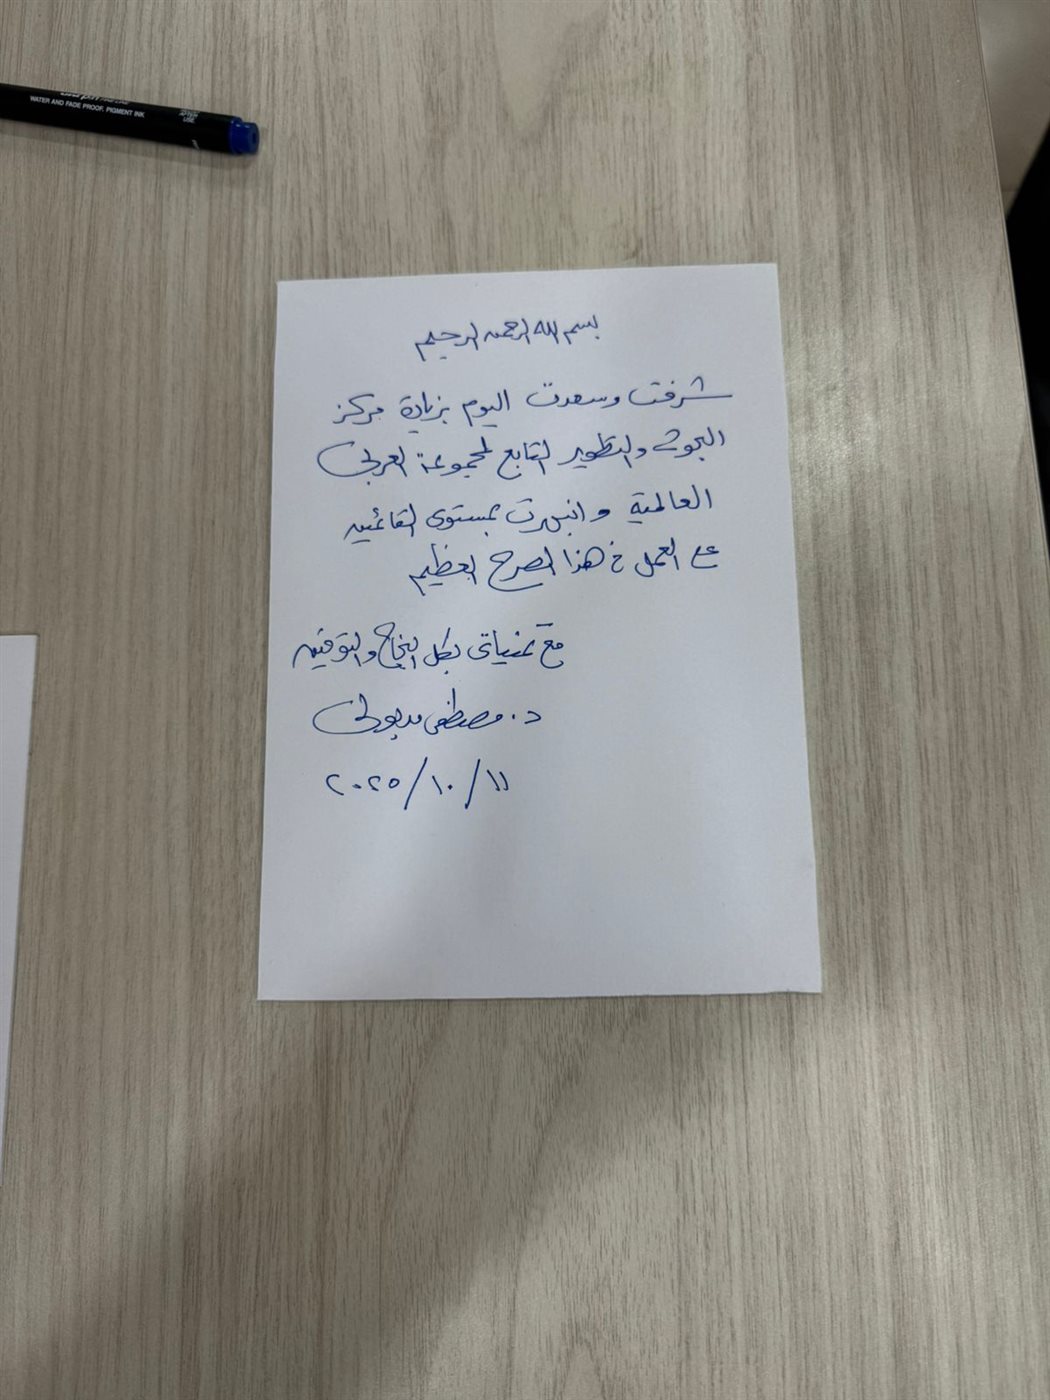 WATER AND FADE PROOF, PIGMENT INK
AFTER
USE
بسم الله الرحمن الرحيم
شرفت وسعدت اليوم بزيارة مركز
البحوث والتطوير التابع لمجموعة العربى
العالمية وانبهرت بمستوى القائمين
على العمل فى هذا الصرح العظيم
مع تمنياتى بكل النجاح والتوفيق
د. مصطفى مدبولى
٢٠٢٥/١٠/١١